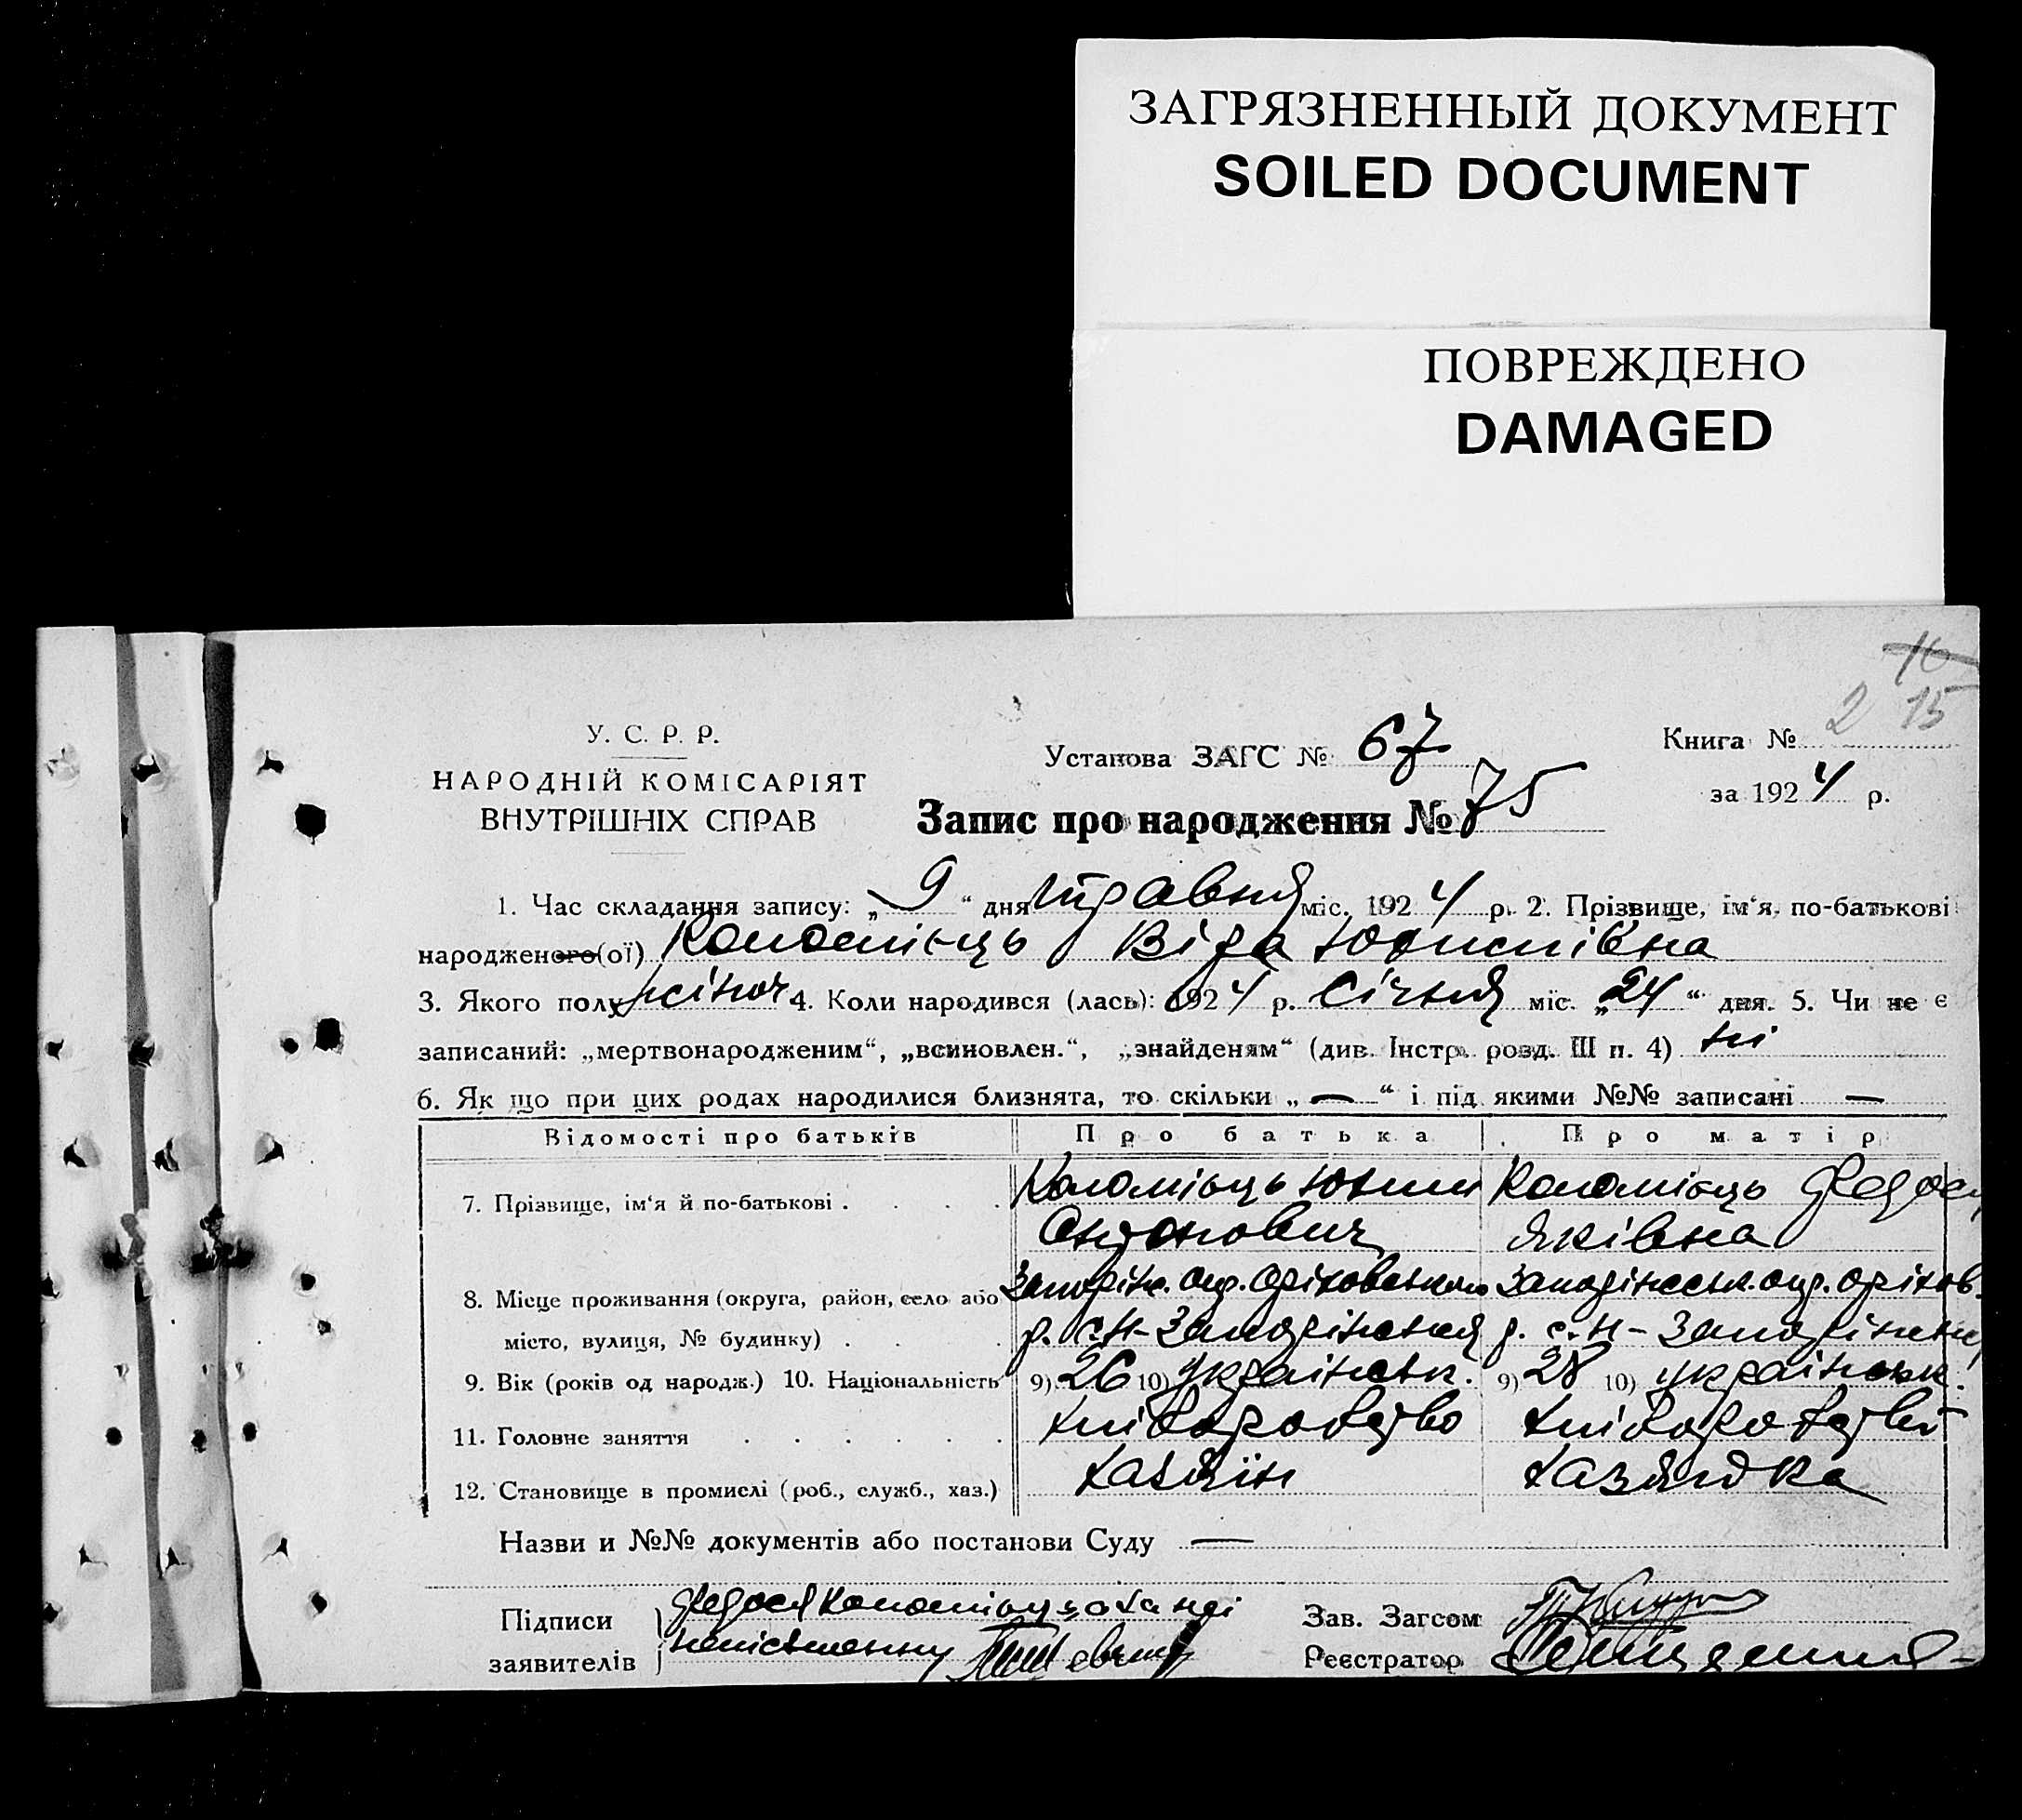 ЗАГРЯЗНЕННЫЙ ДОКУМЕНТ
SOILED DOCUMENT
ПОВРЕЖДЕНО
DAMAGED
16
2 15
У. С. Р. Р.
НАРОДНІЙ КОМІСАРІЯТ
ВНУТРІШНІХ СПРАВ
Установа ЗАГС № 67
Запис про народження № 75
Книга №
за 1924 р.
1. Час складання запису: „9“ дня травня міс. 1924 р. 2. Прізвище, ім‘я, по-батькові
народженого(ої) Коломієць Віра Юхимівна
3. Якого полу жіноч. 4. Коли народився (лась): 1924 р. Січня міс. „24“ дня. 5. Чи не є
записаний: „мертвонародженим“, „всиновлен.“, „знайденям“ (див. Інстр. розд. III п. 4) ні
6. Як що при цих родах народилися близнята, то скільки „—“ і під якими №№ записані —
Відомості про батьків Про батька Про матір
7. Прізвище, ім‘я й по-батькові . . . . Коломієць Юхим Коломієць Федося
Антонович Яківна
8. Місце проживання (округа, район, село або Запоріж. окр. Оріховського Запоріжськ. окр. Оріхов.
місто, вулиця, № будинку) . . . р. с. Н-Запоріжжя р. с. Н-
9. Вік (років од народж.) 10. Національність 9) 26 10) українськ. 9) 28 10) українськ.
11. Головне заняття . . . . . . хліборобство хліборобство
12. Становище в промислі (роб., служб., хаз.) хазяїн хазяйка
Назви и №№ документів або постанови Суду —
Підписи Федося Коломієць а за неї Зав. Загсом
заявителів неписьменну Реєстратор